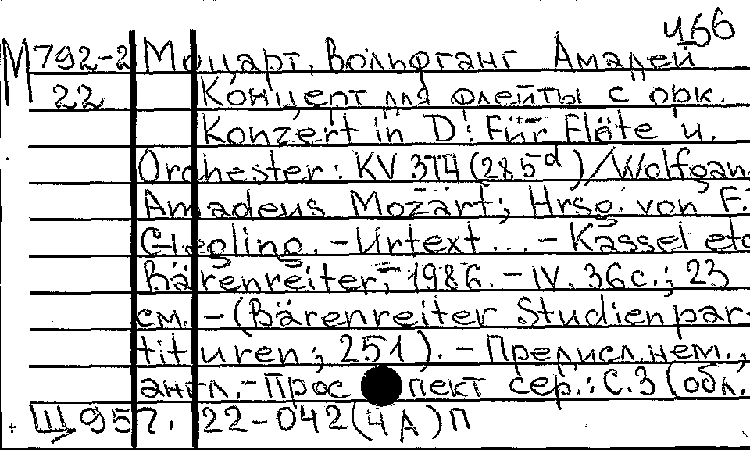 466
М792-2 Моцарт, Вольфганг Амадей
22 Концерт для флейты с орк.
Konzert in D: Für Flöte u.
Orchester: KV 314 (285d) / Wolfgang
Amadeus Mozart; Hrsg. von F.
Giegling. – Urtext... – Kassel etc
Bärenreiter, 1986. – IV. 36 с.; 23
см. – (Bärenreiter Studienpar-
tituren; 251). – Предисл. нем.,
англ. – Проспект сер.: С. 3 (обл.
Щ957. 22-042(4А)П